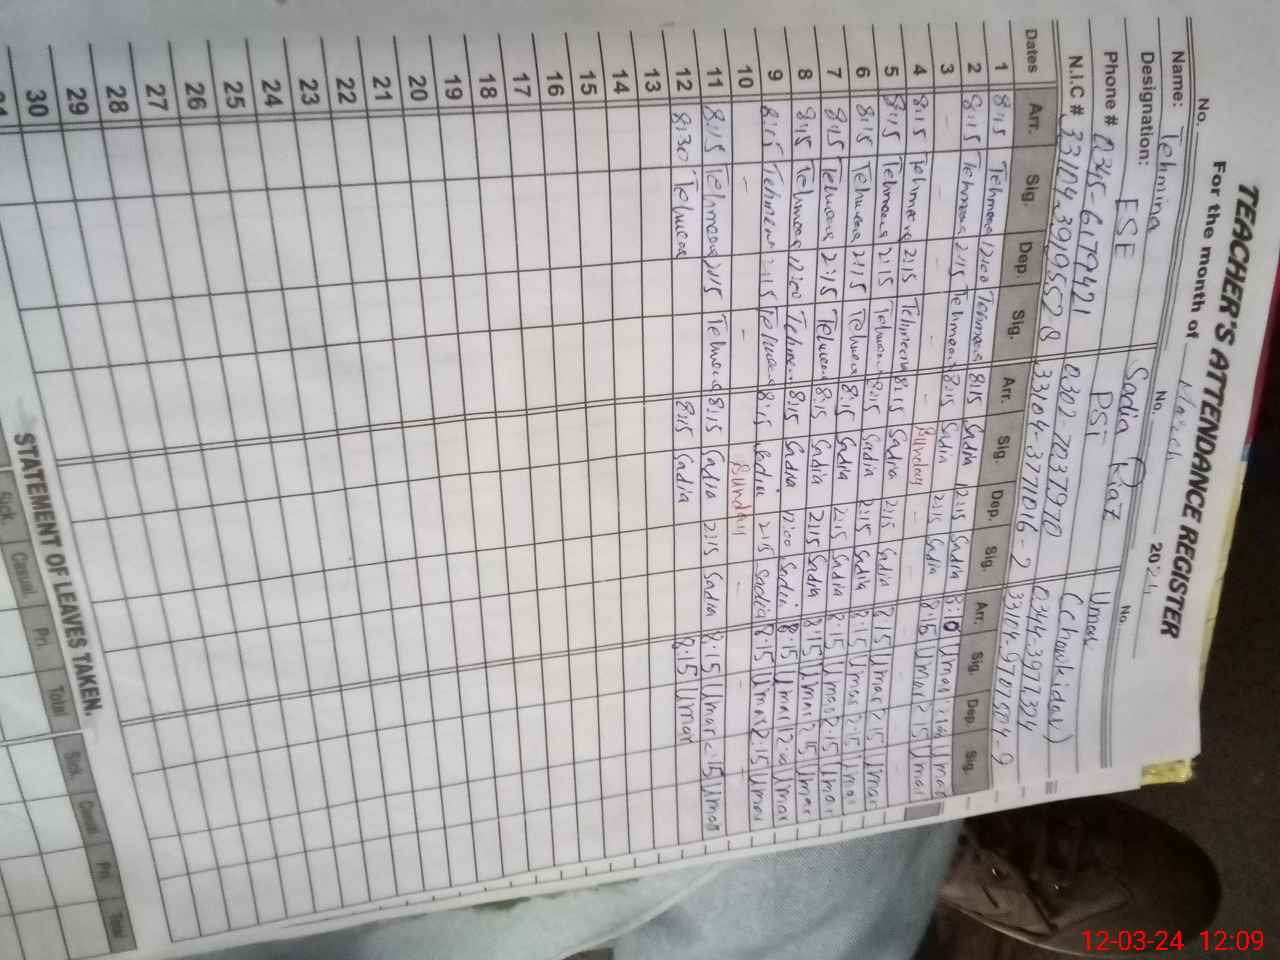 TEACHER'S ATTENDANCE REGISTER
For the month of March 2024
No. No. No.
Name: Tehmina Sadia Riaz Umar
Designation: ESE PST (Chowkidar)
Phone # 0345-6179421 0302-7037970 0344-3977324
N.I.C # 33104-3919552 8 33104-3771016-2 33104-9701504-9
Dates Arr. Sig. Dep. Sig. Arr. Sig. Dep. Sig. Arr. Sig. Dep. Sig.
1 8:15 Tehmana 12:00 Tehmana 8:15 Sadia 12:15 Sadia 8:10 Umar Umar
2 8:15 Tehmana 2:15 Tehmana 8:15 Sadia 2:15 Sadia 8:15 Umar 2:15 Umar
3 - - - - - Sunday - - - -
4 8:15 Tehmana 2:15 Tehmana 8:15 Sadia 2:15 Sadia 8:15 Umar 2:15 Umar
5 8:15 Tehmana 2:15 Tehmana 8:15 Sadia 2:15 Sadia 8:15 Umar 2:15 Umar
6 8:15 Tehmana 2:15 Tehmana 8:15 Sadia 2:15 Sadia 8:15 Umar 2:15 Umar
7 8:15 Tehmana 2:15 Tehmana 8:15 Sadia 2:15 Sadia 8:15 Umar 2:15 Umar
8 8:15 Tehmana 12:00 Tehmana 8:15 Sadia 12:00 Sadia 8:15 Umar 12:0 Umar
9 8:15 Tehmana 2:15 Tehmana 8:15 Sadia 2:15 Sadia 8:15 Umar 2:15 Umar
10 - - Sunday - - -
11 8:15 Tehmana 2:15 Tehmana 8:15 Sadia 2:15 Sadia 8:15 Umar 2:15 Umar
12 8:30 Tehmana 8:15 Sadia 8:15 Umar
13
14
15
16
17
18
19
20
21
22
23
24
25
26
27
28
29
30
31
STATEMENT OF LEAVES TAKEN.
Sick. Casual Pri. Total Sick. Casual Pri. Total
12-03-24 12:09